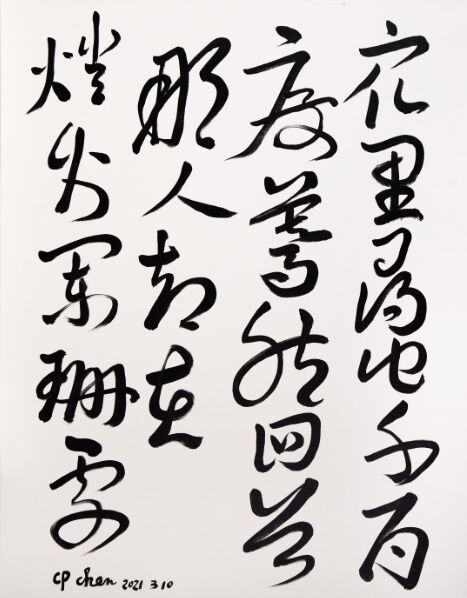 眾里尋他千百
度驀然回首
那人却在
燈火闌珊處
CP chen 2021 3 10